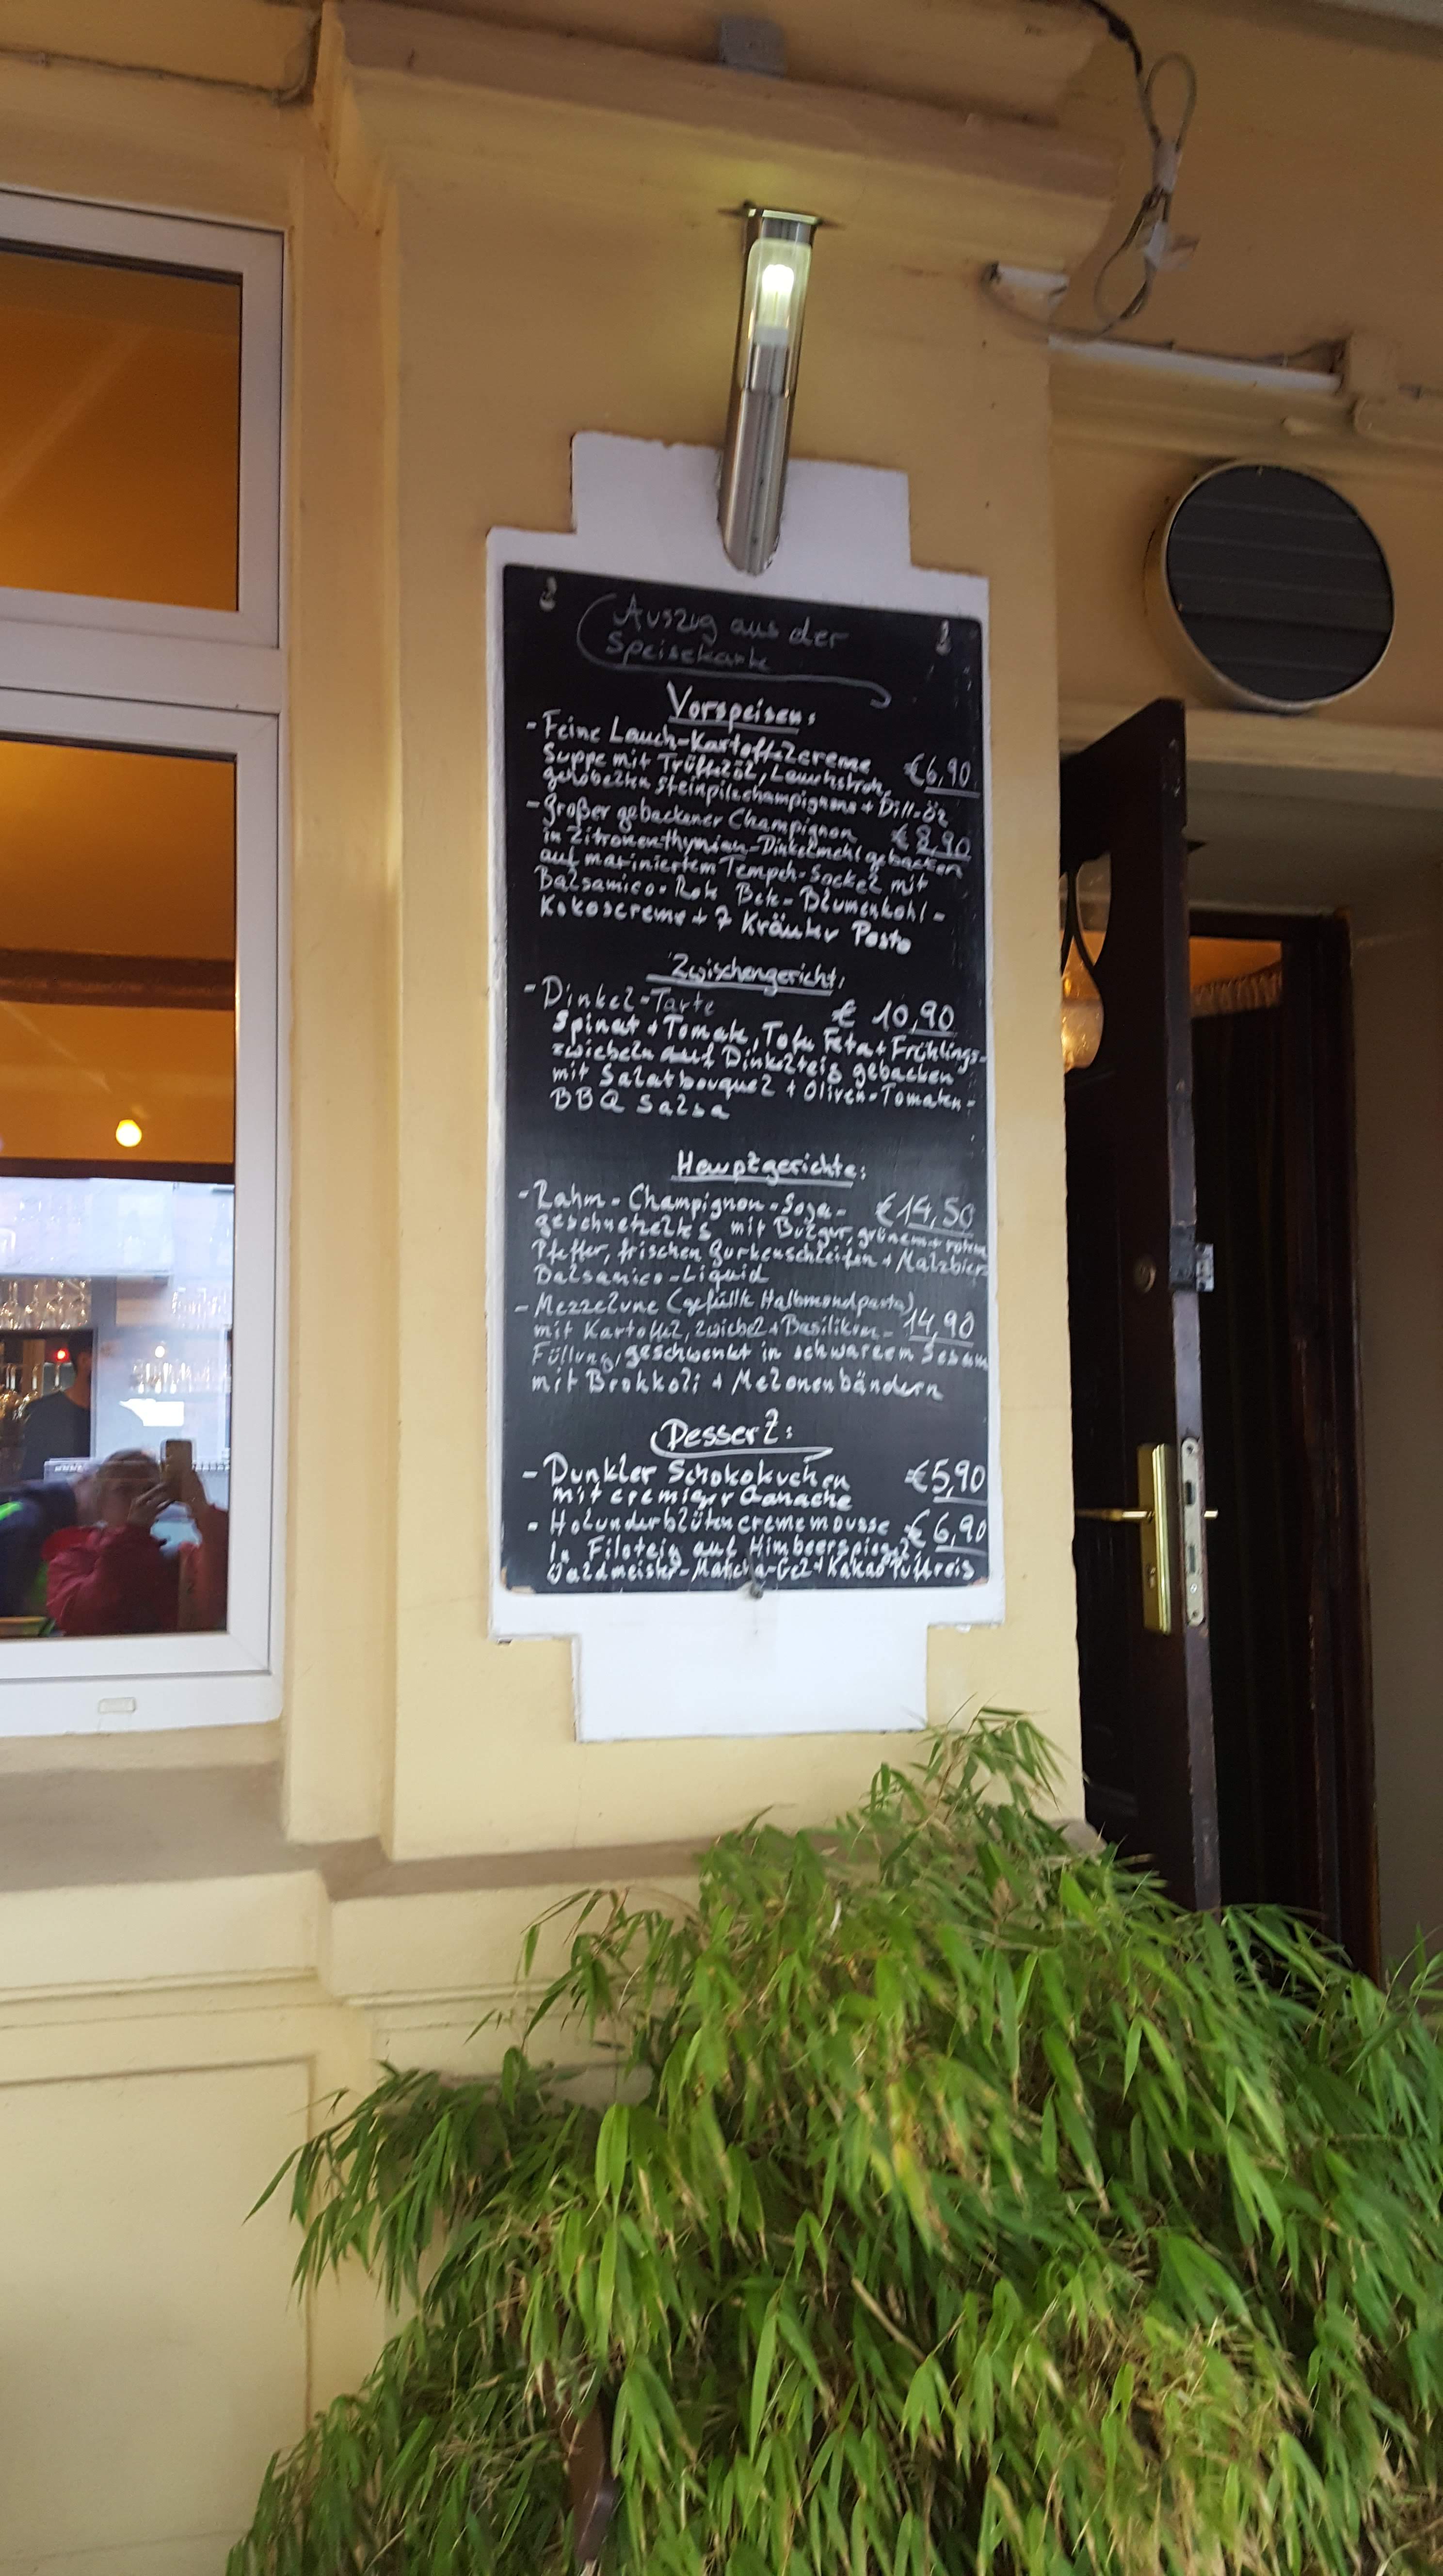 Auszug aus der
Speisekarte
Vorspeisen:
- Feine Lauch-Kartoffelcreme
Suppe mit Trüffelöl, Lauchstroh, €6,90
gehobelten Steinpilzchampignons + Dill-Öl
- Großer gebackener Champignon € 8,90
in Zitronenthymian-Dinkelmehl gebacken
auf mariniertem Tempeh-Sockel mit
Balsamico-Rote Bete-Blumenkohl-
Kokoscreme + 7 Kräuter Pesto
Zwischengericht:
- Dinkel-Tarte € 10,90
Spinat + Tomate, Tofu Feta + Frühlings-
zwiebeln auf Dinkelteig gebacken
mit Salatbouquet + Oliven-Tomaten-
BBQ Salsa
Hauptgerichte:
- Rahm-Champignon-Soja- €14,50
geschnetzeltes mit Bulgur, grünem + rotem
Pfeffer, frischen Gurkenschleifen + Malzbier-
Balsamico-Liquid
- Mezzelune (gefüllte Halbmondpasta)
mit Kartoffel, Zwiebel + Basilikum- 14,90
Füllung, geschwenkt in schwarzem Sesam
mit Brokkoli + Melonenbändern
Dessert:
- Dunkler Schokokuchen €5,90
mit cremiger Ganache
- Holunderblütencrememousse €6,90
In Filoteig auf Himbeerspiegel
Waldmeister-Matcha-Gel + Kakao Puffreis